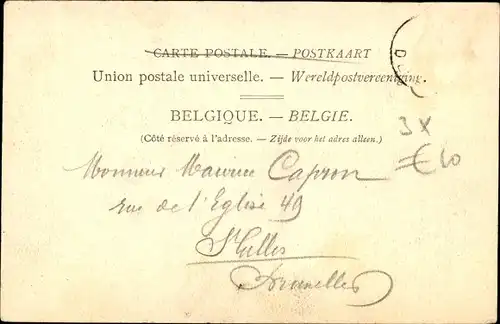 CARTE POSTALE. — POSTKAART
Union postale universelle. — Wereldpostvereeniging.
BELGIQUE. — BELGIE.
(Côté réservé à l'adresse. — Zijde voor het adres alleen.)
3x
€60
Monsieur Maurice Capron
rue de l'Eglise 49
St Gilles
Bruxelles